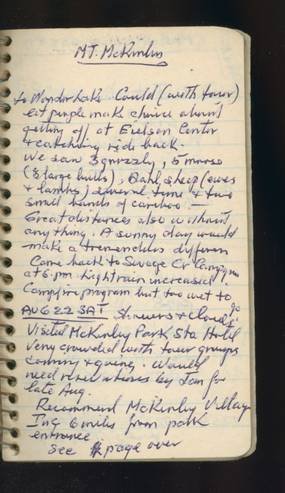 MT. McKinley
to Wonder Lake Could (with tour)
let people make choice about
getting off at Eielson Center
& catching ride back.
We saw 3 grizzly, 5 moose
(3 large bulls), Dahl sheep (ewes
& lambs) several time & two
small bands of caribou —
Great distances also without
anything. A sunny day would
make a tremendous differen
Came back to Savage Cr Campgrn
at 6 pm light rain increased.
Campfire program but too wet to go
AUG 22 SAT Showers & clouds
Visited McKinley Park Sta Hotel
Very crowded with tour groups
coming & going. Would
need reservations by Jan for
late Aug.
Recommend McKinley Village
Inn 6 miles from park
entrance
see page over